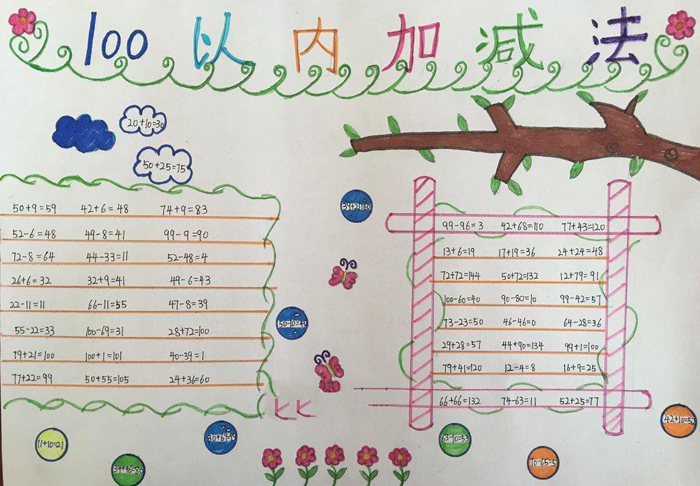 100 以内加减法
20+10=30
50+25=75
50+9=59 42+6=48 74+9=83
52-6=48 49-8=41 99-9=90
72-8=64 44-33=11 52-48=4
26+6=32 32+9=41 49-6=43
22-11=11 66-11=55 47-8=39
55-22=33 100-69=31 28+72=100
79+21=100 100+1=101 40-39=1
77+22=99 50+55=105 24+36=60
99-96=3 42+68=110 77+43=120
13+6=19 17+19=36 24+24=48
72+72=144 50+72=132 12+79=91
100-60=40 90-80=10 99-42=57
73-23=50 46-46=0 64-28=36
29+28=57 44+90=134 99+1=100
79+41=120 12-4=8 16+9=25
66+66=132 74-63=11 52+25=77
11+10=21